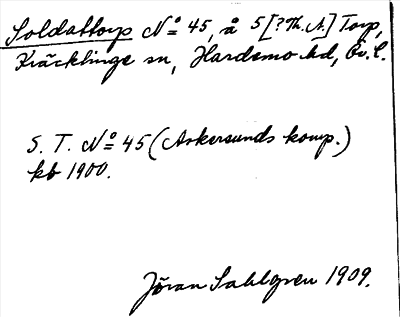 Soldattorp No 45, å 5 [?Th. A.] Torp,
Kräcklinge sn, Hardemo hd, Ör. l.
S. T. No 45 (Askersunds komp.)
kb 1900.
Jöran Sahlgren 1909.